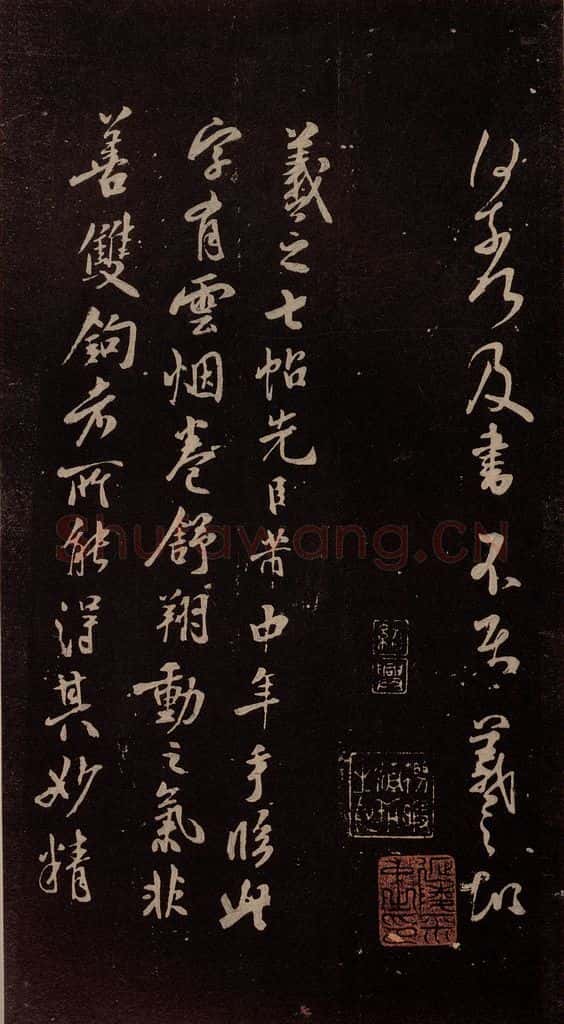 及書不 羲之頓
羲之七帖先臣芾中年手臨此
字有雲烟卷舒翔動之氣非
善雙鉤者所能得其妙精
Shufawang.CN